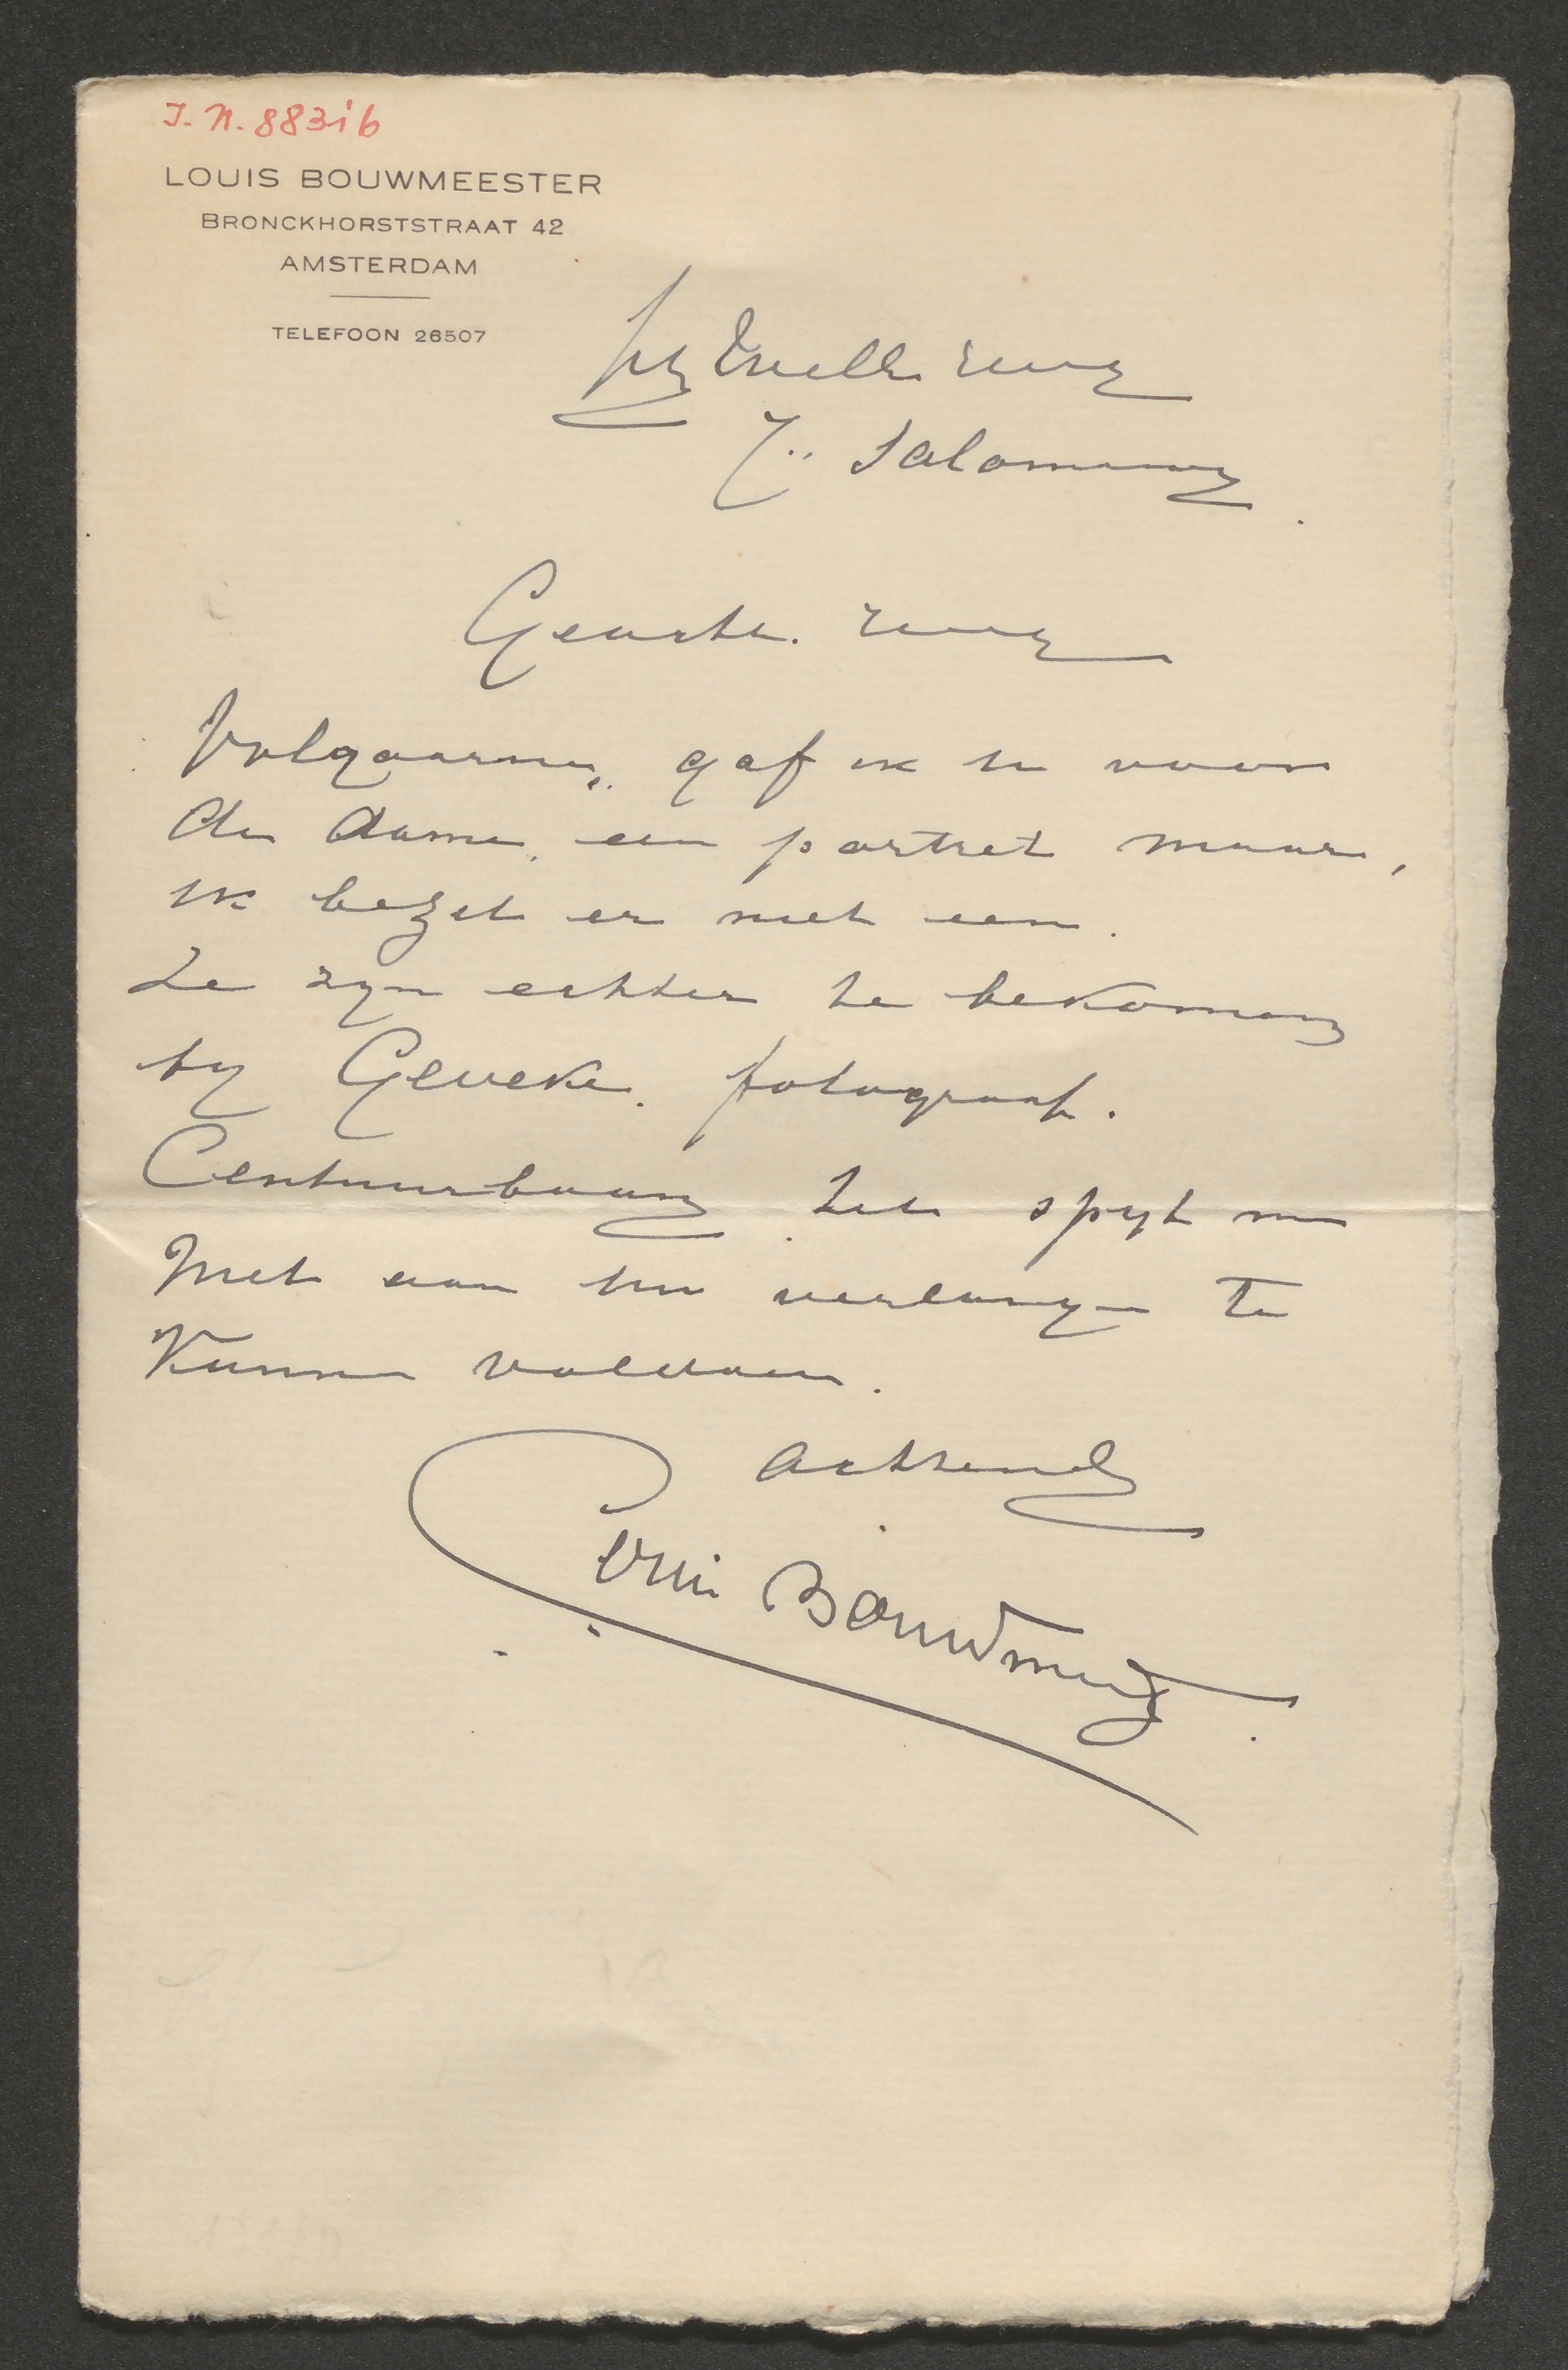 I.N. 88316
LOUIS BOUWMEESTER
BRONCKHORSTSTRAAT 42
AMSTERDAM
TELEFOON 26507
Heer
Salomons
Geachte Heer
Volgaarne, gaf ik U voor
de dame, een portret maar,
ik bezit er niet een.
Ze zyn echter te bekomen
by Geveke. fotograaf.
Ceintuurbaan. Het spyt me
Niet aan Uw verlangen te
Kunnen voldoen.
Achtend
Louis Bouwmeester